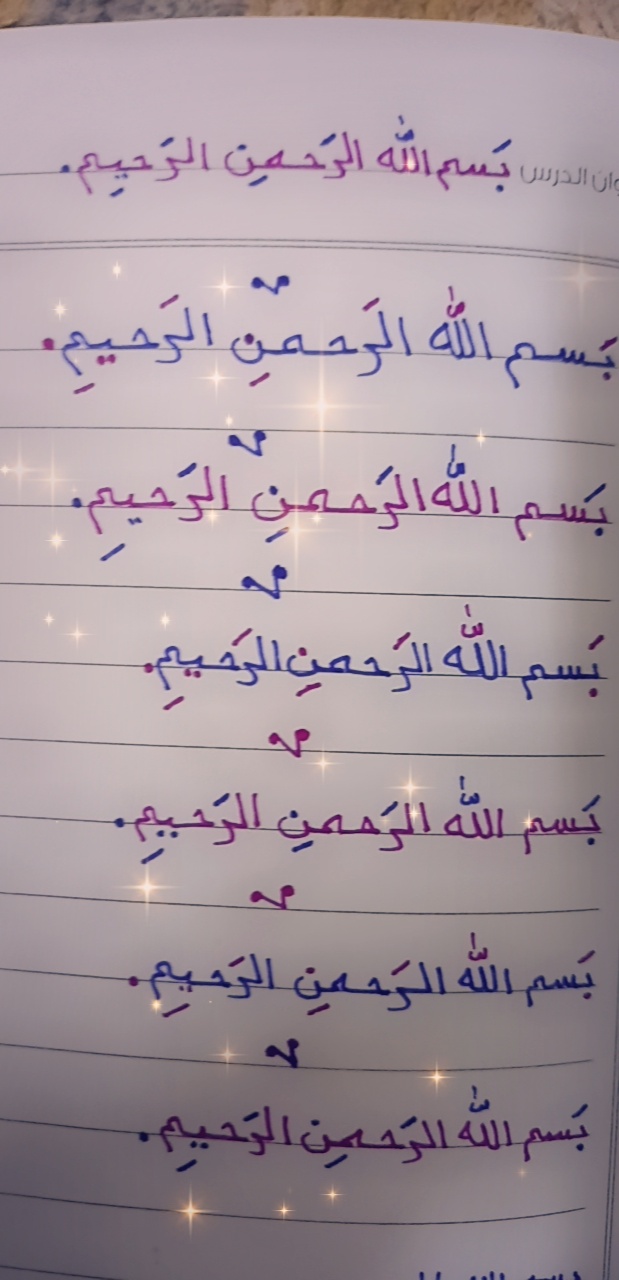 وان الدرس بَسم اللّٰه الرَحمنِ الرَحيِم.
بَسم اللّٰه الرَحمنِ الرَحيمِ.
بَسم اللّٰه الرَحمنِ الرَحيمِ.
بَسم اللّٰه الرَحمنِ الرَحيمِ.
بَسم اللّٰه الرَحمنِ الرَحيمِ.
بَسم اللّٰه الرَحمنِ الرَحيمِ.
بَسم اللّٰه الرَحمنِ الرَحيمِ.